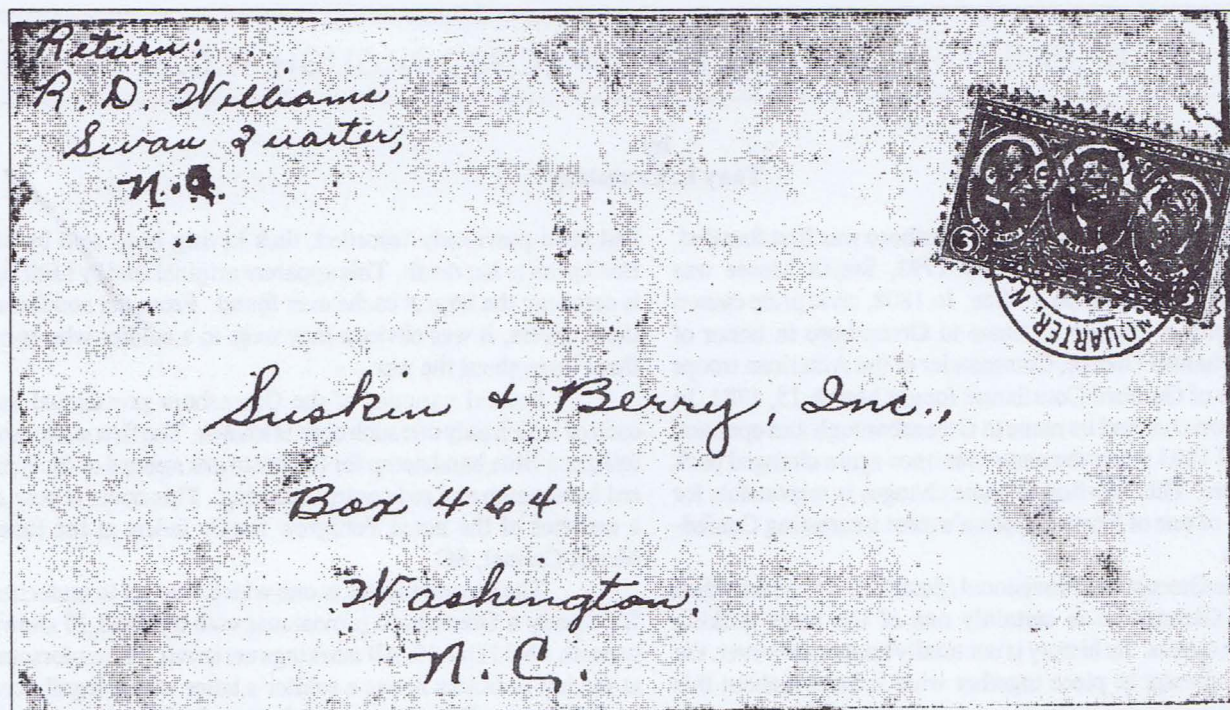 Return:
R. D. Williams
Swan Quarter,
N.C.
3
QUARTER, N
Suskin & Berry, Inc.,
Box 464
Washington.
N. C.